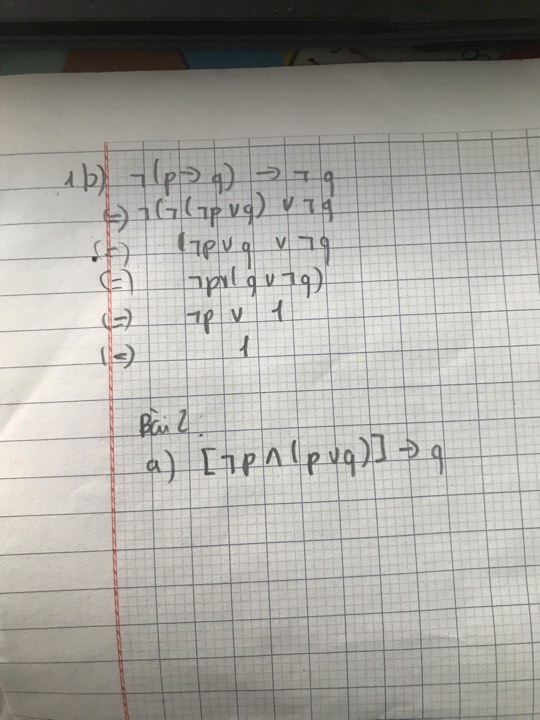 1b) ¬(p → q) → ¬q
(=) ¬(¬(¬p ∨ q) ∨ ¬q
(=) (¬p ∨ q ∨ ¬q
(=) ¬p ∨ (q ∨ ¬q)
(=) ¬p ∨ 1
(=) 1
Bài 2:
a) [¬p ∧ (p ∨ q)] → q